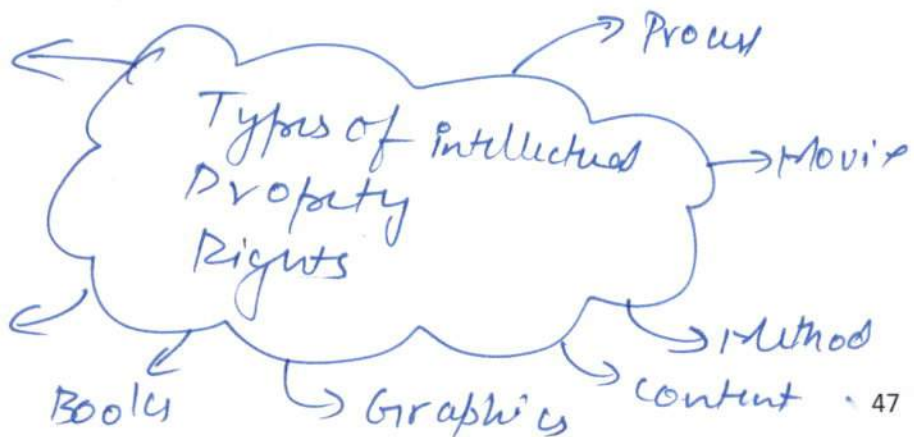 Process
Types of intellectual
Property
Rights
Movie
Method
content
Graphics
Books
47